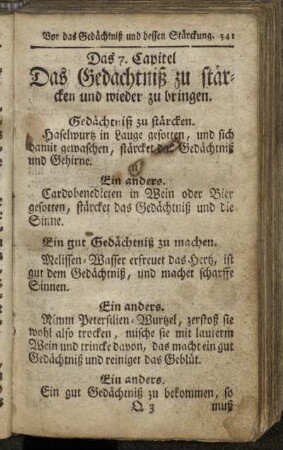 Vor das Gedächtniß und dessen Stärckung. 341
Das 7. Capitel
Das Gedächtniß zu stär-
cken und wieder zu bringen.
Gedächtniß zu stärcken.
Haselwurtz in Lauge gesotten, und sich
damit gewaschen, stärcket das Gedächtniß
und Gehirne.
Ein anders.
Cardobenedicten in Wein oder Bier
gesotten, stärcket das Gedächtniß und die
Sinne.
Ein gut Gedächtniß zu machen.
Melissen-Wasser erfreuet das Hertz, ist
gut dem Gedächtniß, und machet scharffe
Sinnen.
Ein anders.
Nimm Petersilien-Wurtzel, zerstoß sie
wohl also trocken, mische sie mit lauterm
Wein und trincke davon, das macht ein gut
Gedächtniß und reiniget das Geblüt.
Ein anders.
Ein gut Gedächtniß zu bekommen, so
Q 3 muß